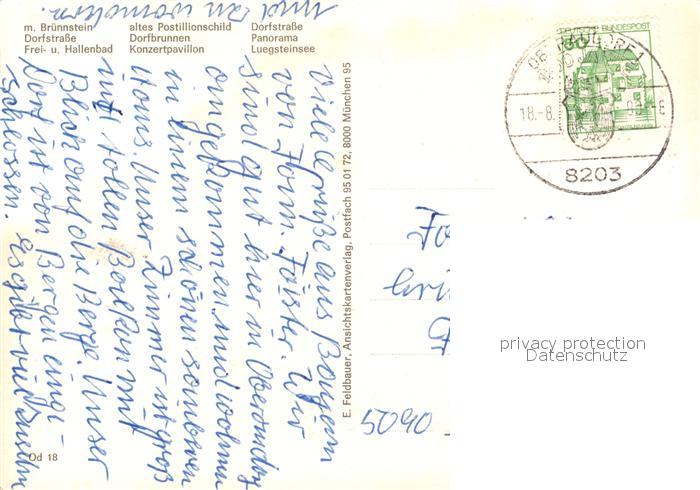 m. Brünnstein altes Postillionschild Dorfstraße
Dorfstraße Dorfbrunnen Panorama
Frei- u. Hallenbad Konzertpavillon Luegsteinsee
Viele Grüße aus Bayern
von Fam. Förster. Wir
sind gut hier in Oberaudorf
angekommen und wohnen
in einem schönen sauberen
Haus. Unser Zimmer ist groß
mit tollen Balkon mit
Blick auf die Berge. Unser
Dorf ist von Bergen einge-
schlossen. Es gibt viel zu sehn
und zu wandern.
Od 18
E. Feldbauer, Ansichtskartenverlag, Postfach 95 01 72, 8000 München 95
BUNDESPOST
OBERAUDORF 1
18.-8.
8203
5090
privacy protection
Datenschutz